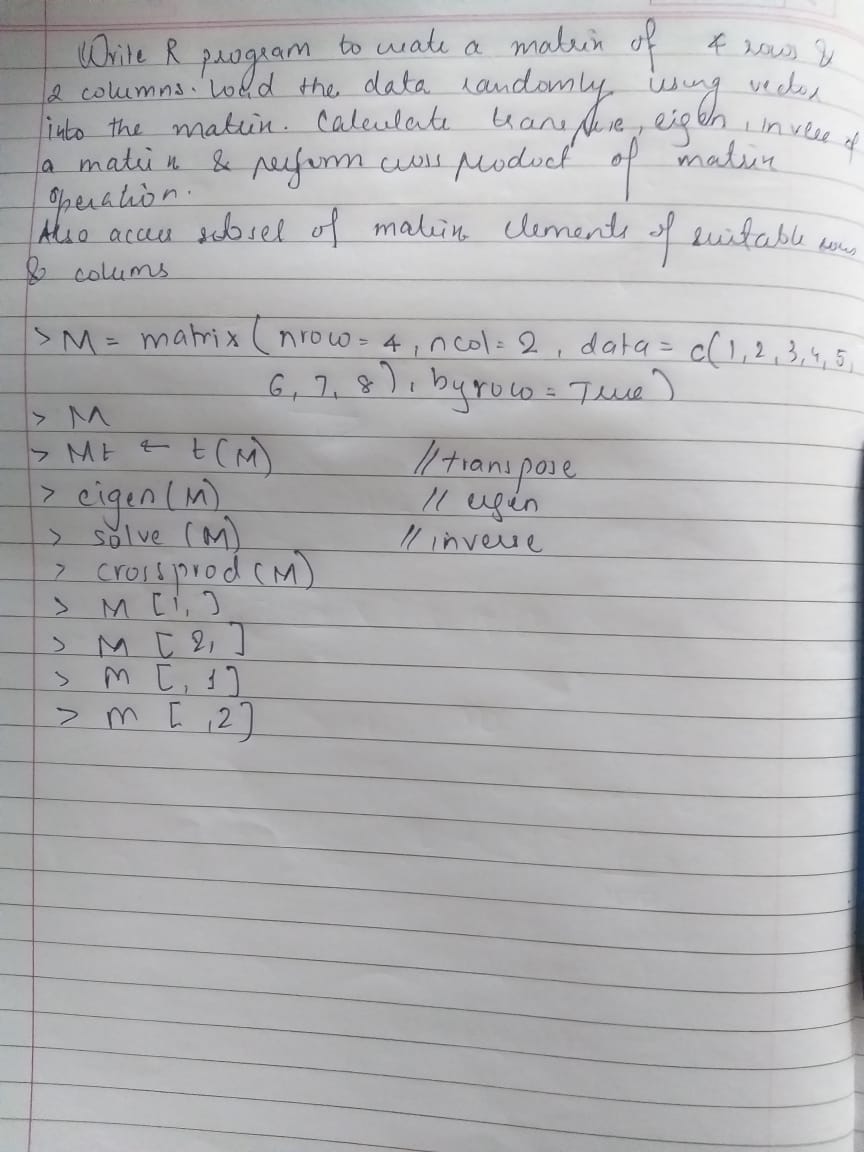 Write R program to create a matrix of 4 rows &
2 columns. Load the data randomly using vector
into the matrix. Calculate transpose, eigen, inverse of
a matrix & perform cross product of matrix
operation.
Also access subset of matrix elements of suitable rows
& colums
> M = matrix ( nrow = 4, ncol = 2, data = c(1, 2, 3, 4, 5,
6, 7, 8), byrow = True)
> M
> Mt ← t(M) // transpose
> eigen(M) // eigen
> solve (M) // inverse
> crossprod (M)
> M [1, ]
> M [2, ]
> m [, 1]
> m [ ,2]